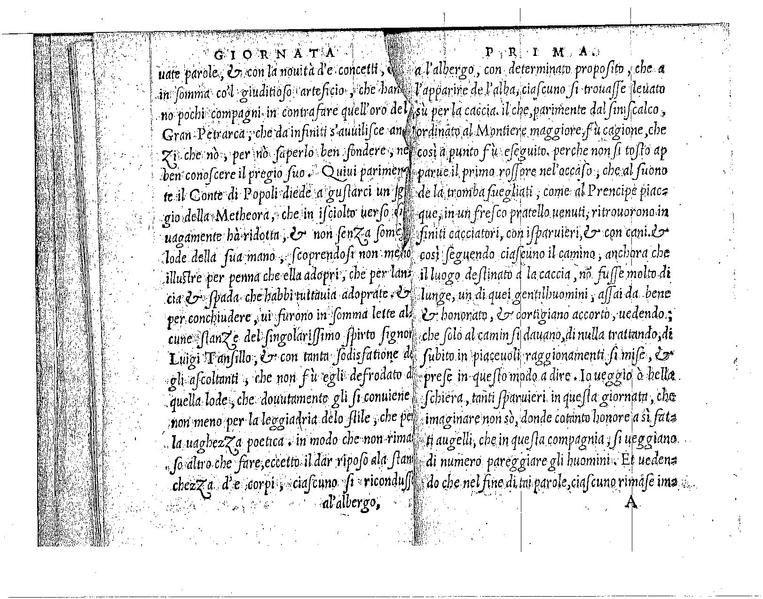 GIORNATA
uate parole, & con la nouità d'e concetti, &
in somma co'l giuditioso arteficio, che han
no pochi compagni in contrafare quell'oro del
Gran Petrarca, che da infiniti s'auuilisce an
Zi che nò, per nò saperlo ben fondere, ne
ben conoscere il pregio suo. Quiui parimen
te il Conte di Popoli diede a gustarci un
gio della Metheora, che in isciolto uerso
uagamente hà ridotta, & non senZa some
lode della sua mano, scoprendosi non meno
illustre per penna che ella adopri, che per lan
cia & spada che habbi tuttauia adoprate. &
per conchiudere, ui furono in somma lette al
cune stanZe del singolarissimo spirto signor
Luigi Tansillo, & con tanta sodisfatione d
gli ascoltanti, che non fù egli defrodato d
quella lode, che douutamente gli si conuiene
non meno per la leggiadria delo stile, che per
la uagheZZa poetica. in modo che non rima
so altro che fare, eccetto il dar riposo ala stan
cheZZa d'e corpi, ciascuno si ricondusse
al'albergo,
PRIMA.
a l'albergo, con determinato proposito, che a
l'apparire de l'alba, ciascuno si trouasse leuato
sù per la caccia. il che, parimente dal siniscalco,
ordinato al Montiere maggiore, fù cagione, che
così à punto fù eseguito. perche non si tosto ap
parue il primo rossore nel'occaso, che al suono
de la tromba suegliati, come al Prencipe piac=
que, in un fresco pratello uenuti, ritrouorono in
finiti cacciatori, con isparuieri, & con cani. &
così seguendo ciascuno il camino, anchora che
il luogo destinato à la caccia, nõ fusse molto di
lunge, un di quei gentilhuomini, assai da bene
& honorato, & cortigiano accorto, uedendo,
che solo al camin si dauano, di nulla trattando, di
subito in piaceuoli raggionamenti si mise, &
prese in questo modo a dire. Io ueggio ò bella
schiera, tanti sparuieri in questa giornata, che
imaginare non sò, donde cotanto honore a sì fat=
ti augelli, che in questa compagnia, si ueggiano
di numero pareggiare gli huomini. Et ueden=
do che nel fine di tai parole, ciascuno rimase ima=
A